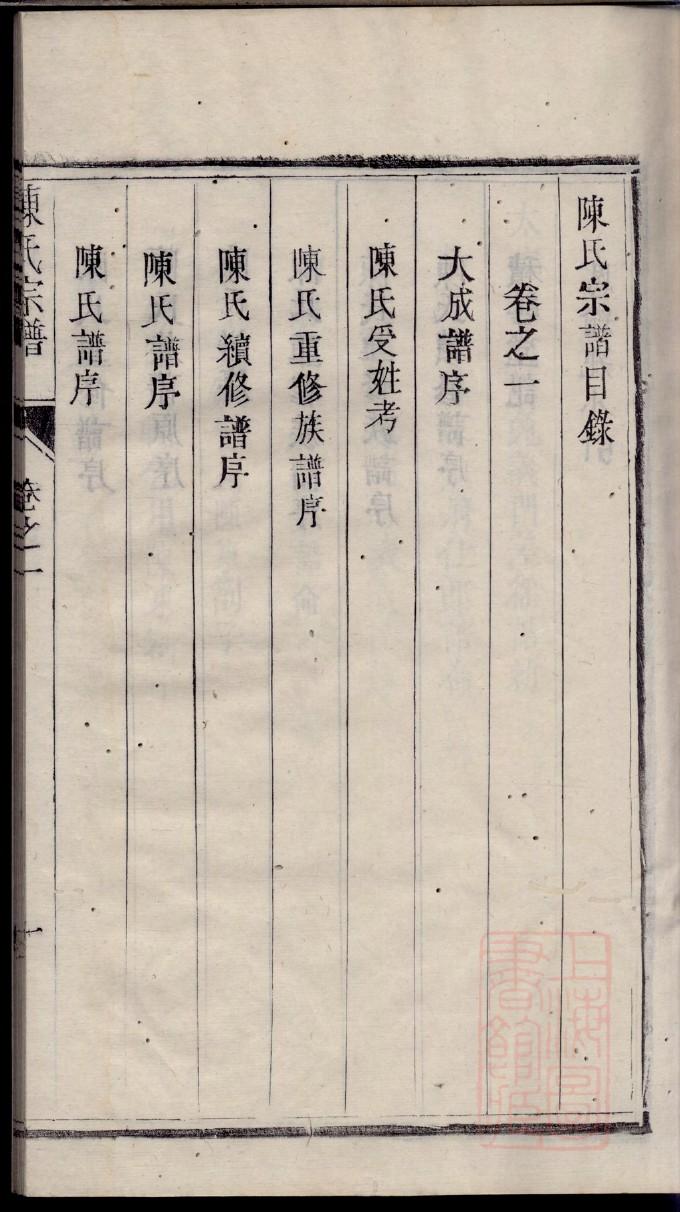 陳氏宗譜目錄
卷之一
大成譜序
陳氏受姓考
陳氏重修族譜序
陳氏續修譜序
陳氏譜序
陳氏譜序
陳氏宗譜
卷之一
一
上海圖書館藏